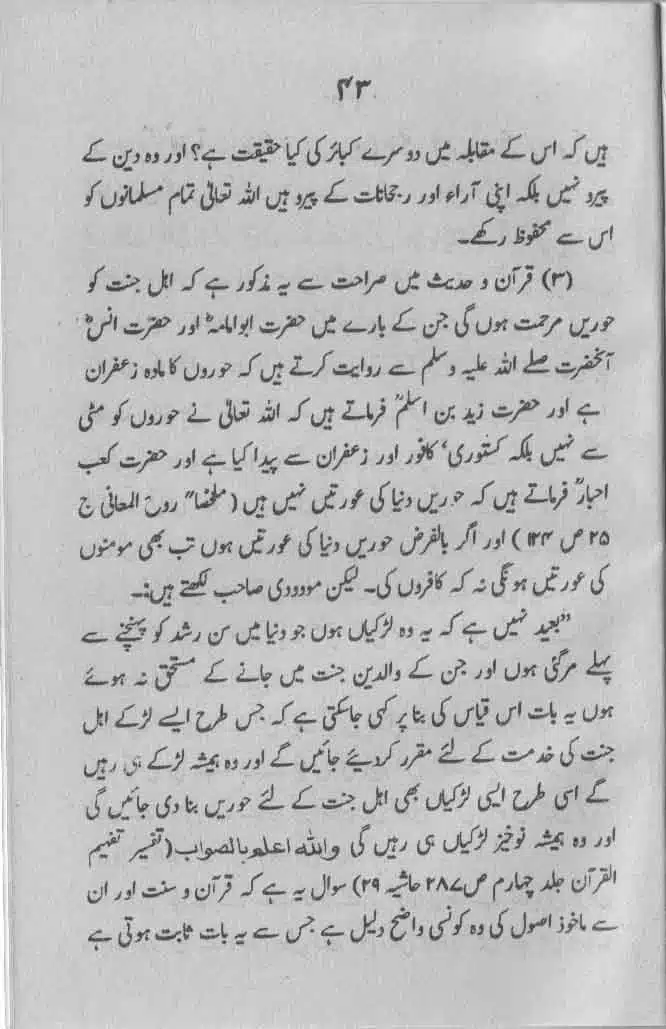 ۴۳
ہیں کہ اس کے مقابلہ میں دوسرے کبائر کی کیا حقیقت ہے؟ اور وہ دین کے
پیرو نہیں بلکہ اپنی آراء اور رجحانات کے پیرو ہیں اللہ تعالیٰ تمام مسلمانوں کو
اس سے محفوظ رکھے۔
(۳) قرآن و حدیث میں صراحت سے یہ مذکور ہے کہ اہل جنت کو
حوریں مرحمت ہوں گی جن کے بارے میں حضرت ابوامامہؓ اور حضرت انسؓ
آنحضرت صلے اللہ علیہ وسلم سے روایت کرتے ہیں کہ حوروں کا مادہ زعفران
ہے اور حضرت زید بن اسلمؒ فرماتے ہیں کہ اللہ تعالیٰ نے حوروں کو مٹی
سے نہیں بلکہ کستوری، کافور اور زعفران سے پیدا کیا ہے اور حضرت کعب
احبارؒ فرماتے ہیں کہ حوریں دنیا کی عورتیں نہیں ہیں (ملخصاً روح المعانی ج
۲۵ ص ۱۲۴) اور اگر بالفرض حوریں دنیا کی عورتیں ہوں تب بھی مومنوں
کی عورتیں ہونگی نہ کہ کافروں کی۔ لیکن مودودی صاحب لکھتے ہیں:۔
”بعید نہیں ہے کہ یہ وہ لڑکیاں ہوں جو دنیا میں سن رشد کو پہنچنے سے
پہلے مرگئی ہوں اور جن کے والدین جنت میں جانے کے مستحق نہ ہوئے
ہوں یہ بات اس قیاس کی بنا پر کہی جاسکتی ہے کہ جس طرح ایسے لڑکے اہل
جنت کی خدمت کے لئے مقرر کردیئے جائیں گے اور وہ ہمیشہ لڑکے ہی رہیں
گے اسی طرح ایسی لڑکیاں بھی اہل جنت کے لئے حوریں بنا دی جائیں گی
اور وہ ہمیشہ نوخیز لڑکیاں ہی رہیں گی واللہ اعلم بالصواب (تفسیر تفہیم
القرآن جلد چہارم ص۲۸۷ حاشیہ ۲۹) سوال یہ ہے کہ قرآن و سنت اور ان
سے ماخوذ اصول کی وہ کونسی واضح دلیل ہے جس سے یہ بات ثابت ہوتی ہے